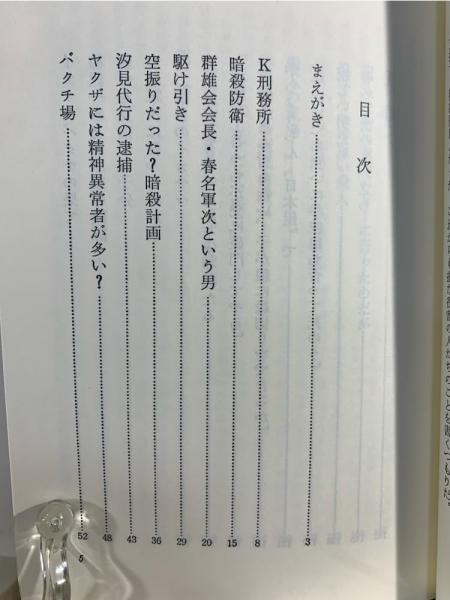 目次
まえがき……3
K刑務所……8
暗殺防衛……15
群雄会会長・春名軍次という男……20
駆け引き……29
空振りだった?暗殺計画……36
汐見代行の逮捕……43
ヤクザには精神異常者が多い?……48
バクチ場……52
5